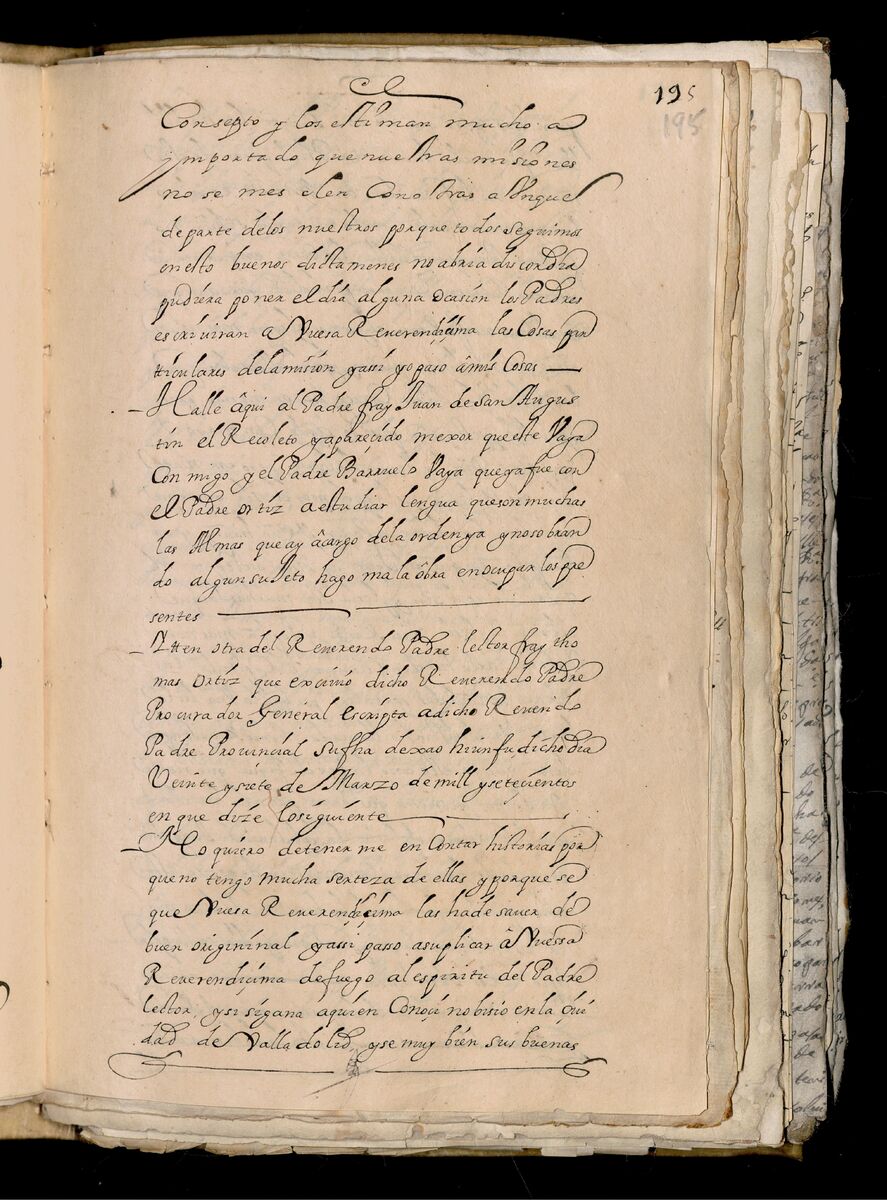 195
195
Consepto y los estiman mucho a
ymportado que nuestras misiones
no se mesclen Conostras aunque
departe delos nuestros porque todos seguimos
enesto buenos dictamenes no abria discordia
pudiera poner el dia alguna ocasion los Padres
escriviran a Vuesa Reverendiçima las Cosas par
ticulares dela mision yassi yo paso âmis Cosas
Halle âqui al Padre fray Juan de San Augus
tin el Recoleto yapareçido mexor queeste Vaya
Conmigo y el Padre Barruelo Vaya que ya fue con
el Padre Ortiz a estudiar lengua queson muchas
las Almas que ay âcargo dela orden ya ynosobran
do algun suJeto hago mala ôbra enocupar los pre
sentes
Ytten otra del Reverendo Padre lector fray tho
mas Ortiz que escrivio dicho Reverendo Padre
Procurador General escripta adicho Reverendo
Padre Provincial sufha dexao hiunfu dicho dia
Veinte ysiete de Marzo de mill ysetecientos
en que dize losiguiente
No quiero detenerme en Contar historias por
que no tengo mucha serteza de ellas y porque se
que Vuesa Reverendiçima las hade saver de
buen origininal yassi passo asuplicar â Vuessa
Reverendiçima defuego al espiritu del Padre
lector, ysi sigana aquien Conoçi nobisio en la çiu
dad de Valladolid, yse muy bien sus buenas